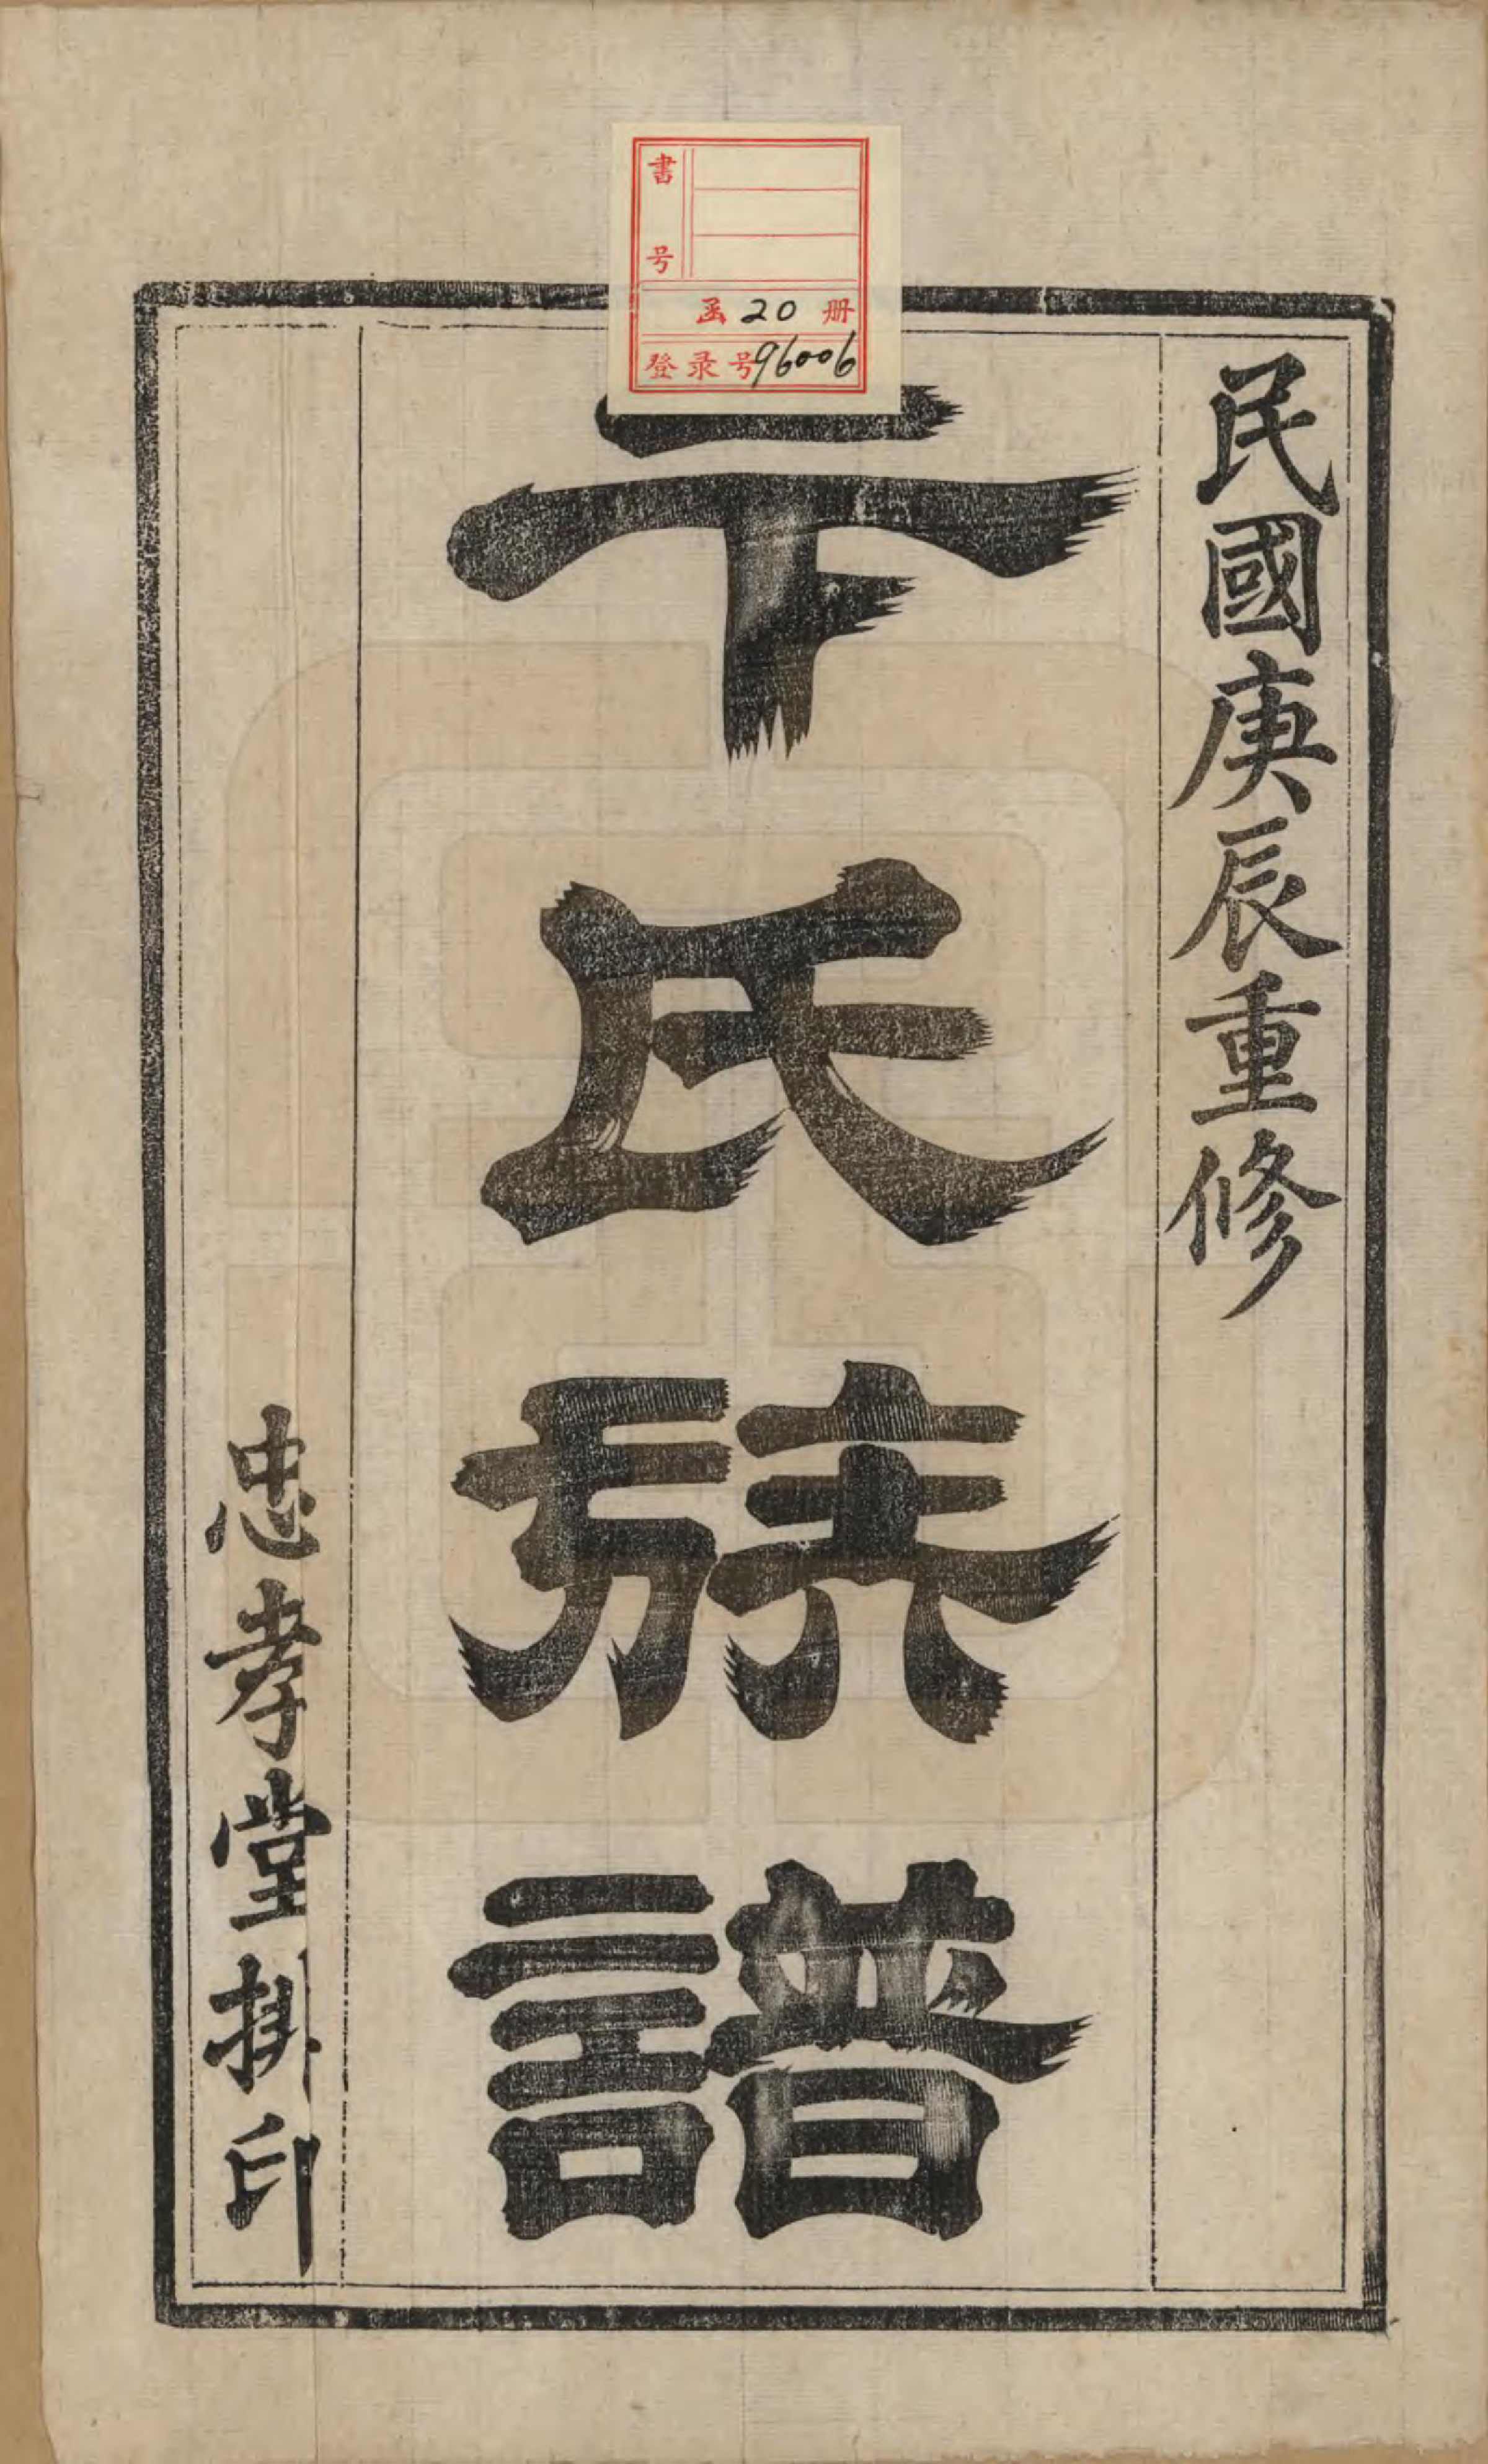 書号
函 20 册
登录号 96006
民國庚辰重修
卞氏族譜
忠孝堂排印